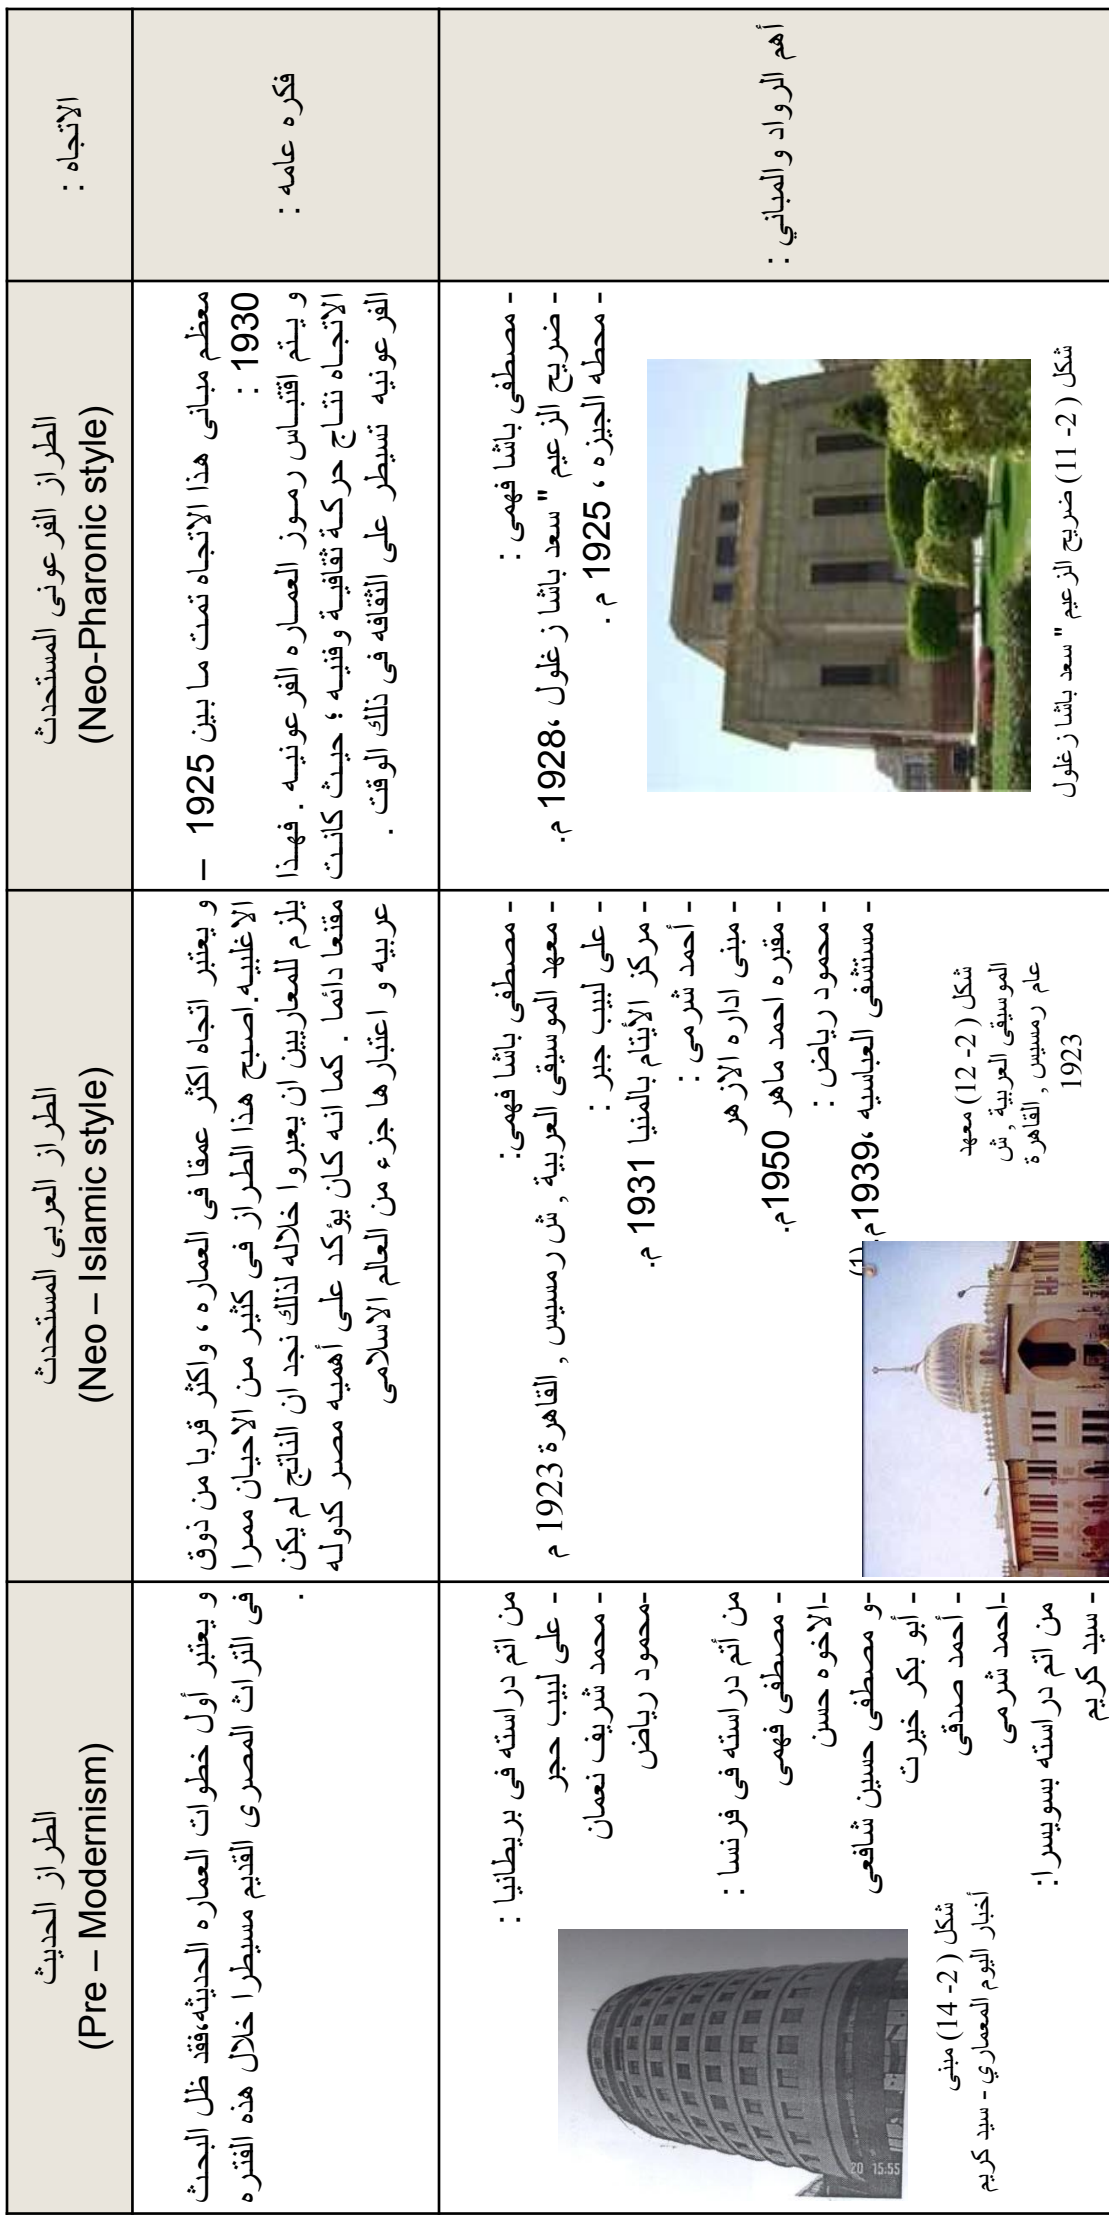 الاتجاه :
الطراز الفرعونى المستحدث
(Neo-Pharonic style)
الطراز العربى المستحدث
(Neo – Islamic style)
الطراز الحديث
(Pre – Modernism)
فكره عامه :
معظم مبانى هذا الاتجاه تمت ما بين 1925 –
1930 :
و يتم اقتباس رموز العماره الفرعونيه . فهذا
الاتجاه نتاج حركة ثقافية وفنيه ؛ حيث كانت
الفرعونيه تسيطر على الثقافه فى ذلك الوقت .
و يعتبر اتجاه اكثر عمقا فى العماره ، واكثر قربا من ذوق
الاغلبيه.اصبح هذا الطراز فى كثير من الاحيان ممرا
يلزم للمعاريين ان يعبروا خلاله لذلك نجد ان الناتج لم يكن
مقتعا دائما . كما انه كان يؤكد على أهميه مصر كدوله
عربيه و اعتبارها جزء من العالم الاسلامى
و يعتبر أول خطوات العماره الحديثه،فقد ظل البحث
فى التراث المصرى القديم مسيطرا خلال هذه الفتره
.
أهم الرواد والمباني :
- مصطفى باشا فهمى :
- ضريح الزعيم "سعد باشا زغلول ،1928 م.
- محطه الجيزه ، 1925 م .
شكل (2- 11) ضريح الزعيم "سعد باشا زغلول
- مصطفى باشا فهمى:
- معهد الموسيقى العربية , ش رمسيس , القاهرة 1923 م
- على لبيب جبر :
- مركز الأيتام بالمنيا 1931 م.
- أحمد شرمى :
- مبنى اداره الازهر
- مقبره احمد ماهر 1950م.
- محمود رياض :
- مستشفى العباسيه ،1939م. (1)
شكل (2- 12) معهد
الموسيقى العربية , ش
عام رمسيس , القاهرة
1923
من اتم دراسته فى بريطانيا :
- على لبيب حجر
- محمد شريف نعمان
-محمود رياض
من أتم دراسته فى فرنسا :
- مصطفى فهمى
-الاخوه حسن
-و مصطفى حسين شافعى
- أبو بكر خيرت
- أحمد صدقى
-احمد شرمى
من اتم دراسته بسويسرا:
- سيد كريم
شكل (2- 14) مبنى
أخبار اليوم المعماري - سيد كريم
20 15:55